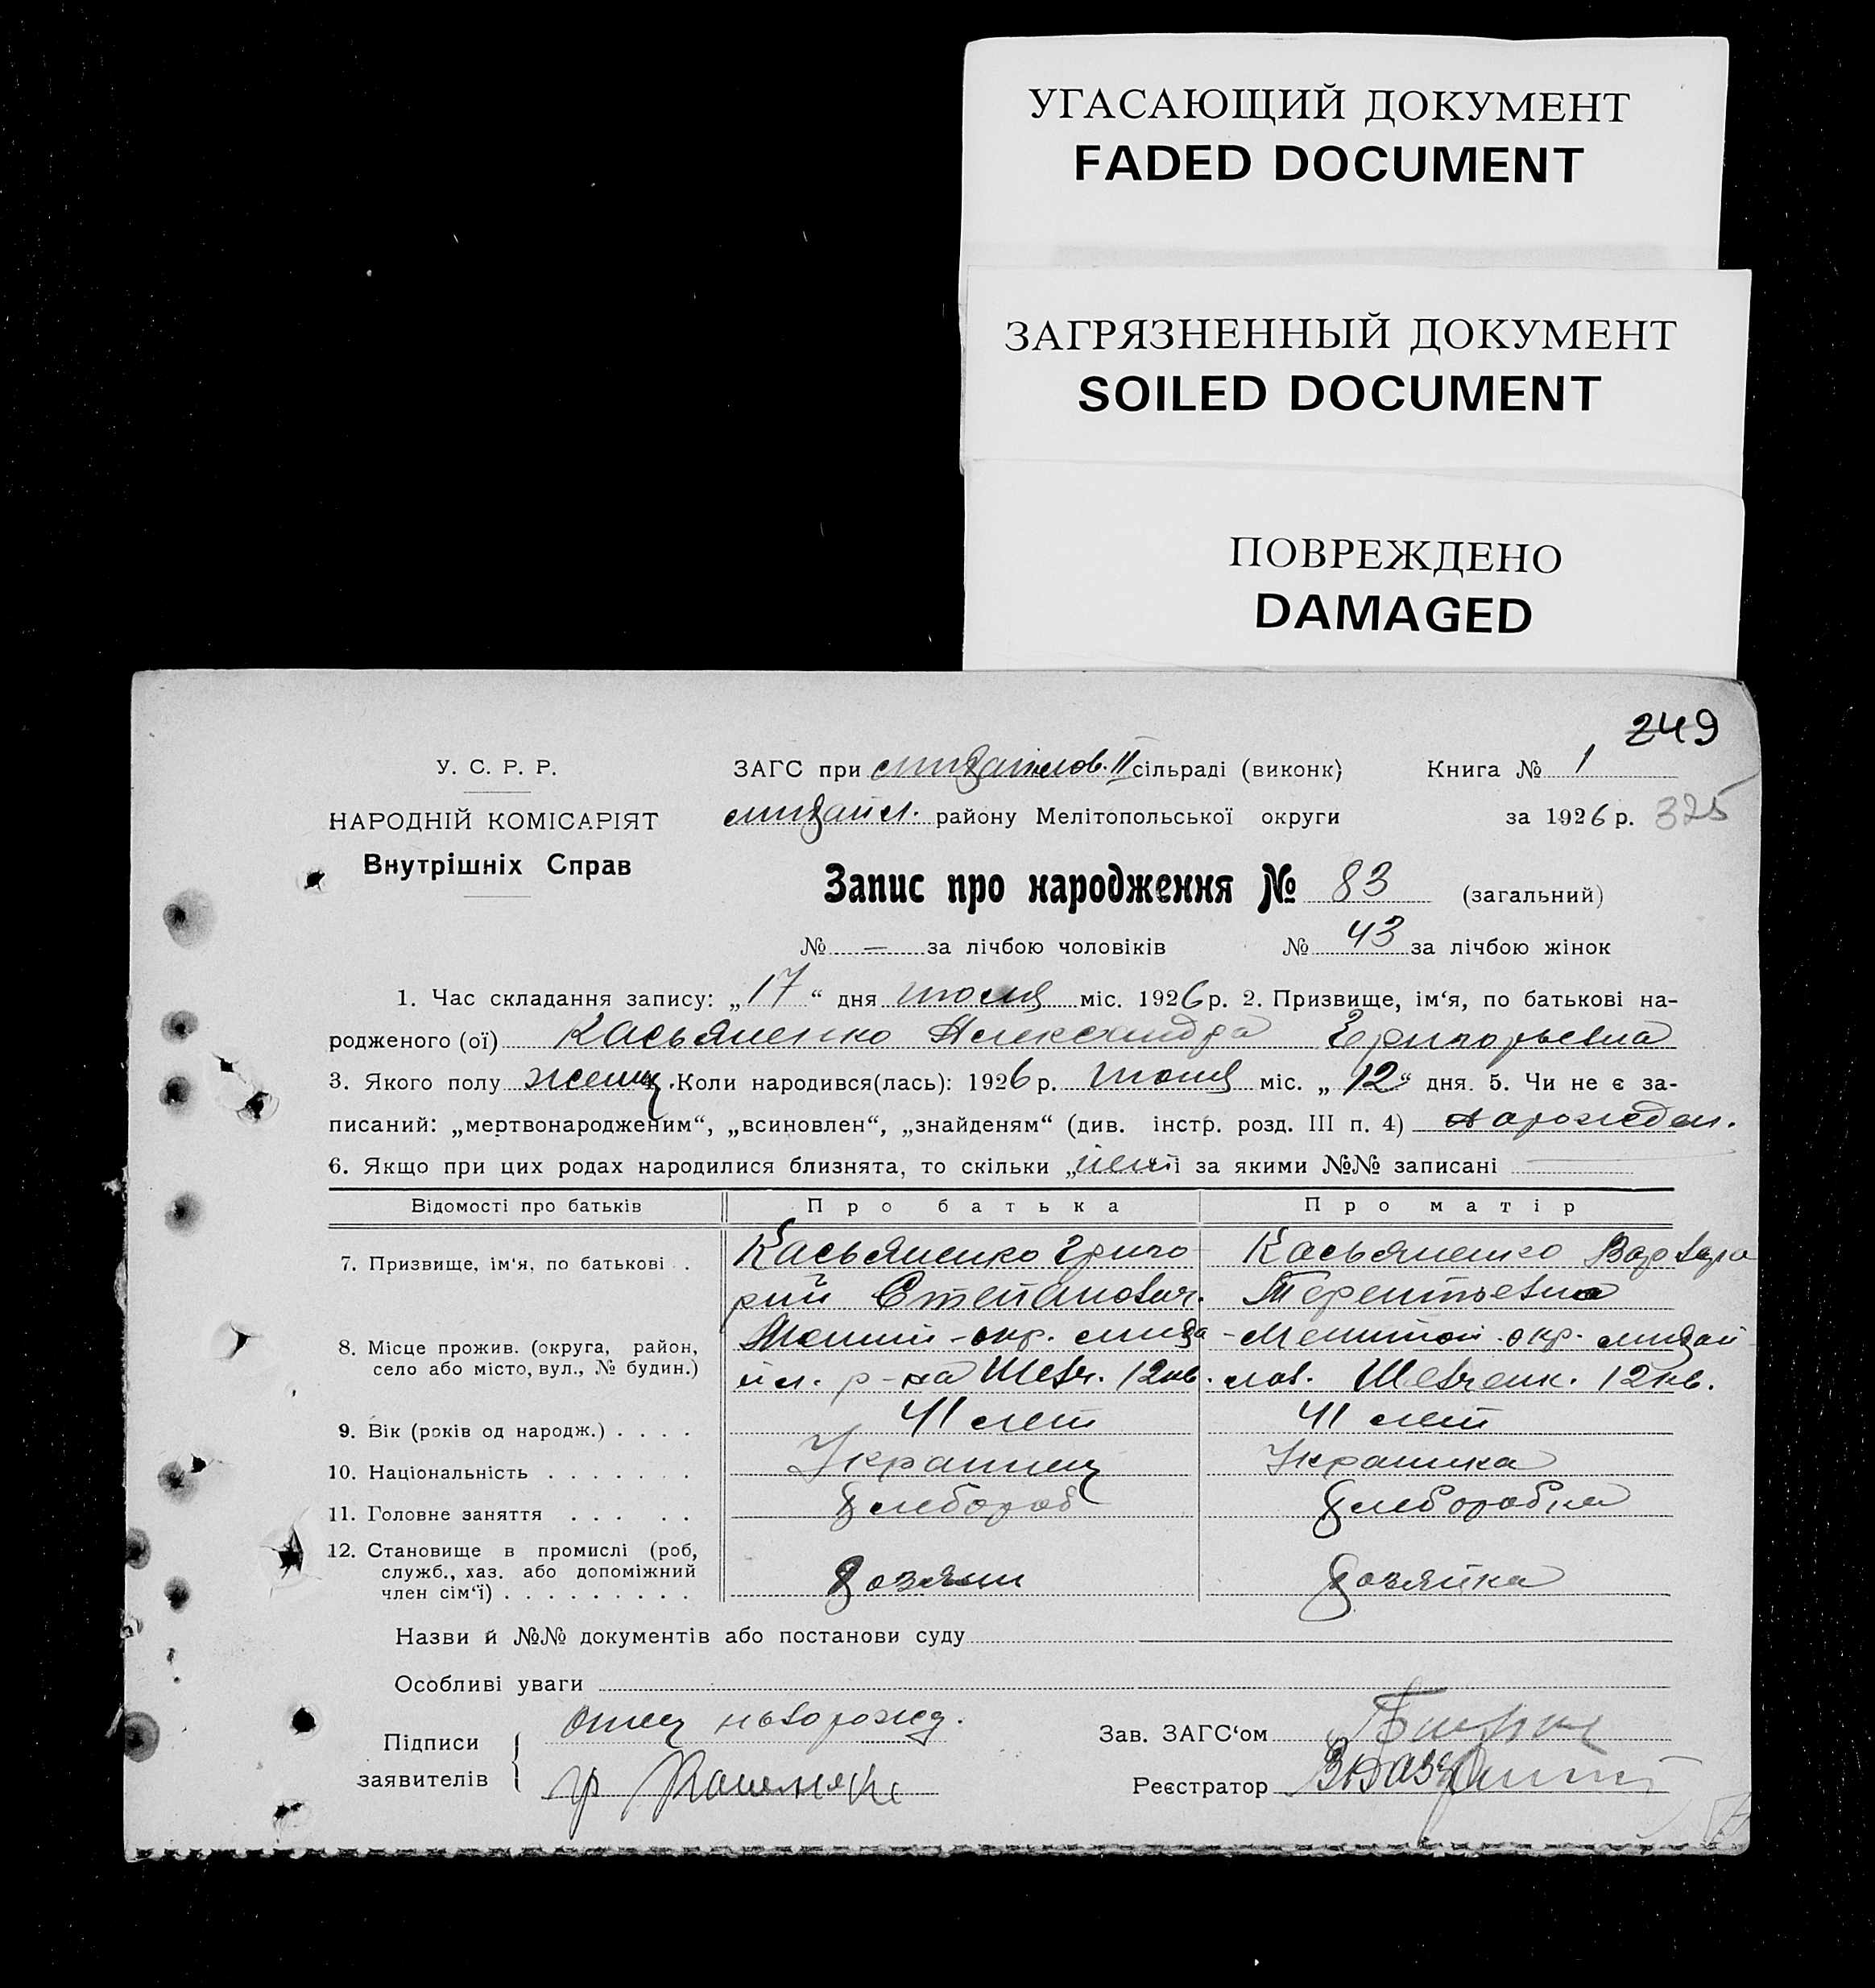 УГАСАЮЩИЙ ДОКУМЕНТ
FADED DOCUMENT
ЗАГРЯЗНЕННЫЙ ДОКУМЕНТ
SOILED DOCUMENT
ПОВРЕЖДЕНО
DAMAGED
249
У. С. Р. Р.
НАРОДНІЙ КОМІСАРІЯТ
Внутрішніх Справ
ЗАГС при михайлов. II сільраді (виконк) Книга № 1
михайл. району Мелітопольської округи за 1926 р. 325
Запис про народження № 83 (загальний)
№ — за лічбою чоловіків № 43 за лічбою жінок
1. Час складання запису: „17“ дня июля міс. 1926 р. 2. Призвище, ім‘я, по батькові на-
родженого (ої) Касьяненко Александра Григорьевна
3. Якого полу женщ. Коли народився(лась): 1926 р. июля міс. „12“ дня. 5. Чи не є за-
писаний: „мертвонародженим“, „всиновлен“, „знайденям“ (див. інстр. розд. III п. 4)
6. Якщо при цих родах народилися близнята, то скільки „ і за якими №№ записані —
Відомості про батьків Про батька Про матір
7. Призвище, ім‘я, по батькові . . Касьяненко Григо- Касьяненко Варвара
рий Степанович. Терентьевна
8. Місце прожив. (округа, район, село або місто, вул., № будин.) Мелит-окр. миха- Мелитоп. окр. михай
йл. р-на Шевч. 12 кв. лов. Шевченк. 12 кв.
9. Вік (років од народж.) . . . . 41 лет 41 лет
10. Національність . . . . . . . Украинец Украинка
11. Головне заняття . . . . . Хлебороб Хлеборобка
12. Становище в промислі (роб, служб., хаз. або допоміжний член сім‘ї) . . . . . . . . . Хозяин Хозяйка
Назви й №№ документів або постанови суду
Особливі уваги
Підписи заявителів { отец новорожд. Зав. ЗАГС‘ом
гр Реєстратор